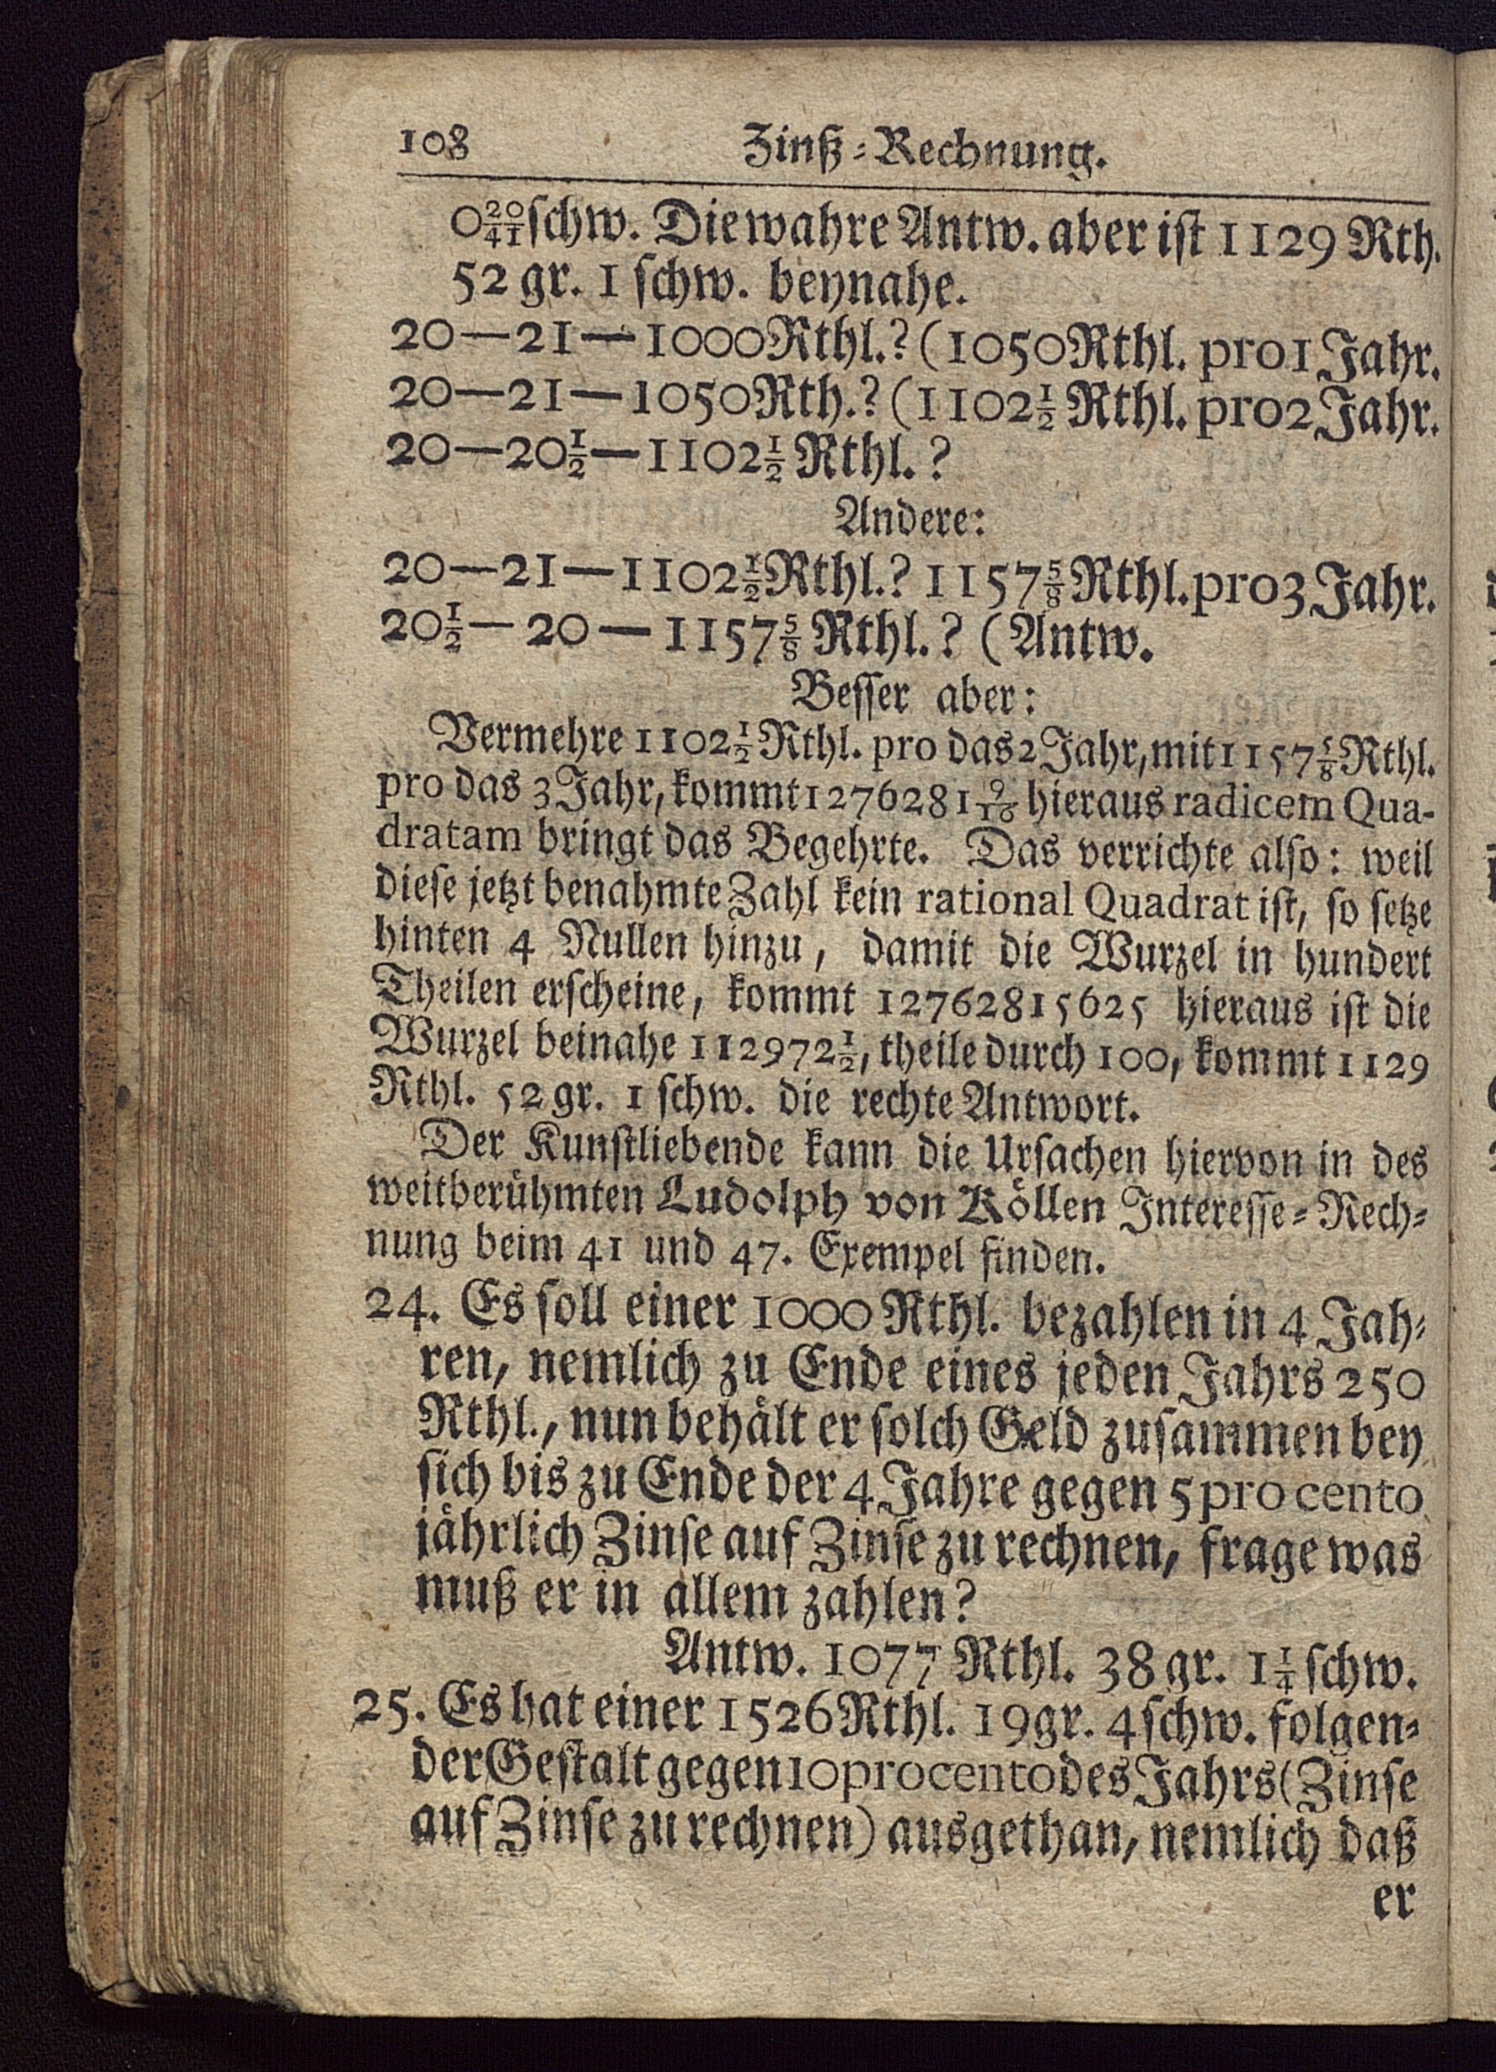 108 Zinß-Rechnung.
0 20/41 schw. Die wahre Antw. aber ist 1129 Rth.
52 gr. 1 schw. beynahe.
20—21—1000 Rthl.? (1050 Rthl. pro 1 Jahr.
20—21—1050 Rth.? (1102 1/2 Rthl. pro 2 Jahr.
20—20 1/2—1102 1/2 Rthl.?
Andere:
20—21—1102 1/2 Rthl.? 1157 5/8 Rthl. pro 3 Jahr.
20 1/2—20—1157 5/8 Rthl.? (Antw.
Besser aber:
Vermehre 1102 1/2 Rthl. pro das 2 Jahr, mit 1157 5/8 Rthl.
pro das 3 Jahr, kommt 1276281 9/16 hieraus radicem Qua-
dratam bringt das Begehrte. Das verrichte also: weil
diese jetzt benahmte Zahl kein rational Quadrat ist, so setze
hinten 4 Nullen hinzu, damit die Wurzel in hundert
Theilen erscheine, kommt 12762815625 hieraus ist die
Wurzel beinahe 112972 1/2, theile durch 100, kommt 1129
Rthl. 52 gr. 1 schw. die rechte Antwort.
Der Kunstliebende kann die Ursachen hiervon in des
weitberühmten Ludolph von Köllen Interesse-Rech-
nung beim 41 und 47. Exempel finden.
24. Es soll einer 1000 Rthl. bezahlen in 4 Jah-
ren, nemlich zu Ende eines jeden Jahrs 250
Rthl., nun behält er solch Geld zusammen bey
sich bis zu Ende der 4 Jahre gegen 5 pro cento
jährlich Zinse auf Zinse zu rechnen, frage was
muß er in allem zahlen?
Antw. 1077 Rthl. 38 gr. 1 1/4 schw.
25. Es hat einer 1526 Rthl. 19 gr. 4 schw. folgen-
der Gestalt gegen 10 pro cento des Jahrs (Zinse
auf Zinse zu rechnen) ausgethan, nemlich daß
er